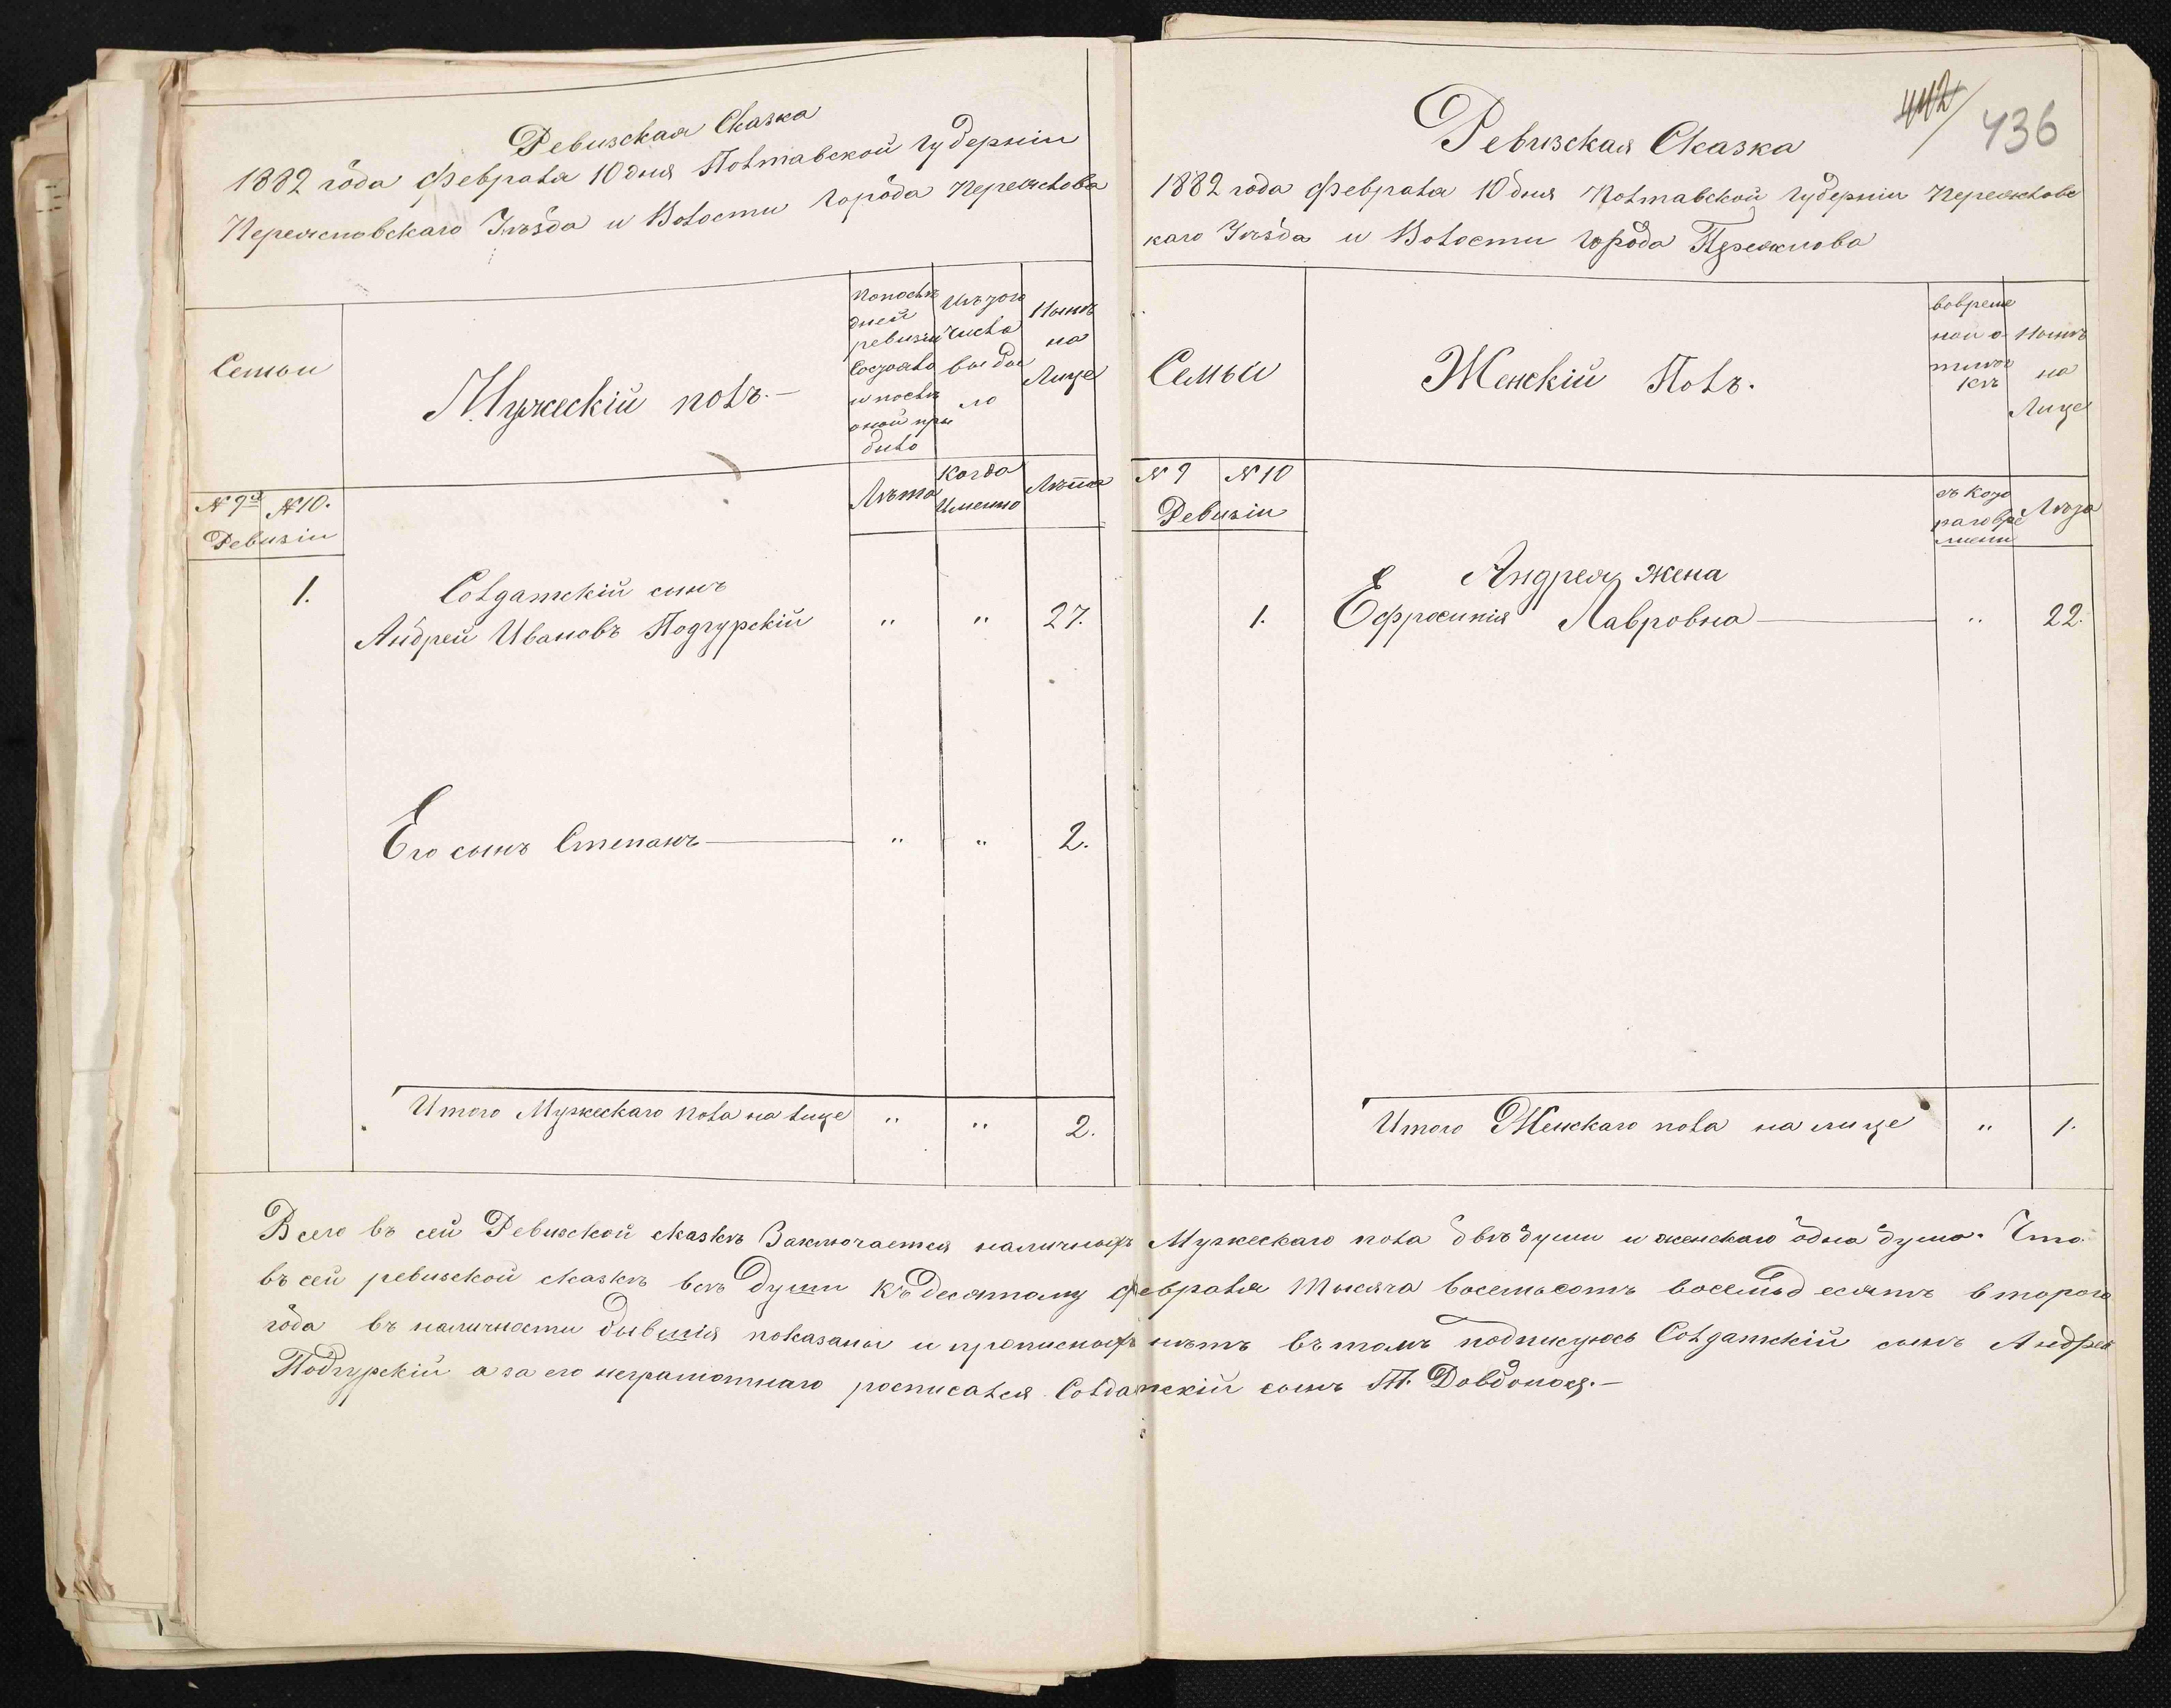 Ревизская Сказка
1882 года Февраля 10 дня Полтавской Губерніи
Переяславскаго Уѣзда и Волости города Переяслова
Семьи
Мужескій полъ.—
По послѣ
дней
ревизіи
состояло
и послѣ
оной при
было
Изъ того
числа
выбы
ло
Нынѣ
на
Лице
Лѣта
Когда
Именно
Лѣта
№ 9й № 10.
Ревизіи
1. Солдатскій сынъ
Андрей Ивановъ Подгурскій " " 27.
Его сынъ Степанъ " " 2.
Итого Мужескаго пола на лице " " 2.
442 436
Ревизская Сказка
1882 года Февраля 10 дня Полтавской Губерніи Переяслове
каго Уѣзда и Волости города Переяслова
Семьи
Женскій Полъ.
во време
ной о
тлуч
кѣ
Нынѣ
на
Лице
№ 9 № 10
Ревизіи
съ кото
раго вре
мени
Лѣта
Андрея жена
1. Ефросинія Лавровна " 22.
Итого Женскаго пола на лице " 1.
Всего въ сей Ревизской сказкѣ Заключается наличныхъ Мужескаго пола двѣ души и женскаго одна душа. Что
въ сей ревизской сказкѣ всѣ души къ десятому февраля тысяча восемьсотъ восемьдесятъ второго
года въ наличности бывшія показаны и прописныхъ нѣтъ въ томъ подписуюсь Солдатскій сынъ Андрей
Подгурскій а за его неграмотнаго росписался Солдатскій сынъ